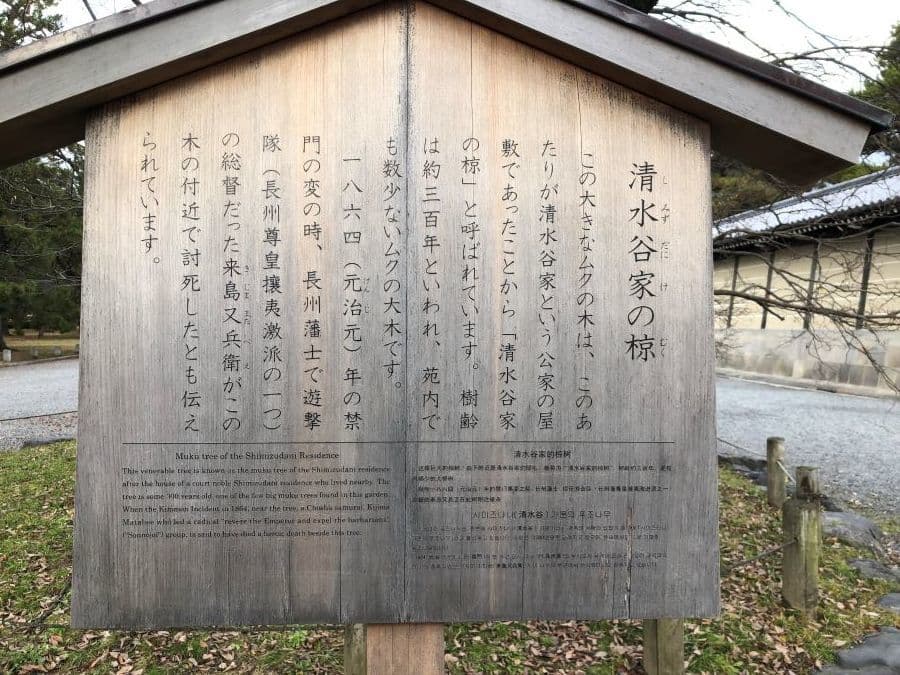 しみずだにけ むく
清水谷家の椋
この大きなムクの木は、このあ
たりが清水谷家という公家の屋
敷であったことから「清水谷家
の椋」と呼ばれています。樹齢
は約三百年といわれ、苑内で
も数少ないムクの大木です。
げんじ
一八六四（元治元）年の禁
門の変の時、長州藩士で遊撃
隊（長州尊皇攘夷激派の一つ）
きじままたべえ
の総督だった来島又兵衛がこの
木の付近で討死したとも伝え
られています。
Muku tree of the Shimizudani Residence
This venerable tree is known as the muku tree of the Shimizudani residence
after the house of a court noble Shimizudani residence who lived nearby. The
tree is some 300 years old, one of the few big muku trees found in this garden.
When the Kinmon Incident in 1864, near the tree, a Choshu samurai, Kijima
Matabue who led a radical "revere the Emperor and expel the barbarians"
("Sonnojoi") group, is said to have died a heroic death beside this tree.
清水谷家的椋树
(清水谷) 가문의 무쿠나무